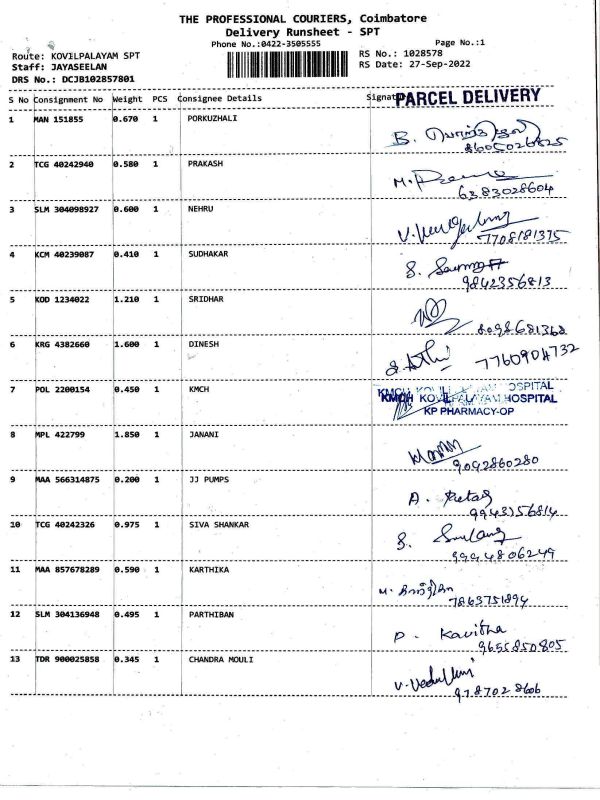 THE PROFESSIONAL COURIERS, Coimbatore
Delivery Runsheet - SPT
Phone No.:0422-3505555 Page No.:1
Route: KOVILPALAYAM SPT RS No.: 1028578
Staff: JAYASEELAN RS Date: 27-Sep-2022
DRS No.: DCJB102857801
S No Consignment No Weight PCS Consignee Details PARCEL DELIVERY
1 MAN 151855 0.670 1 PORKUZHALI B.
2 TCG 40242940 0.580 1 PRAKASH M.
6383028604
3 SLM 304098927 0.600 1 NEHRU V.
7708181375
4 KCM 40239087 0.410 1 SUDHAKAR S.
9842356813
5 KOD 1234022 1.210 1 SRIDHAR
8098681368
6 KRG 4382660 1.600 1 DINESH
7760904732
7 POL 2200154 0.450 1 KMCH KMCH KOVILPALAYAM HOSPITAL
KP PHARMACY-OP
8 MPL 422799 1.850 1 JANANI
9092860280
9 MAA 566314875 0.200 1 JJ PUMPS A.
9943756814
10 TCG 40242326 0.975 1 SIVA SHANKAR S.
9994806249
11 MAA 857678289 0.590 1 KARTHIKA
7863751894
12 SLM 304136948 0.495 1 PARTHIBAN P. Kavitha
9655850805
13 TDR 900025858 0.345 1 CHANDRA MOULI V.
9787028606